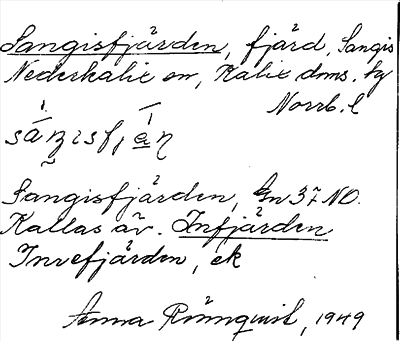 Sangisfjärden, fjärd, Sangis
Nederkalix sn, Kalix dms. by
Norrb. l
Sangisfjärden, Gn 37 NO.
Kallas äv. Infjärden
Inrefjärden, ek
Anna Rönnqvist, 1949